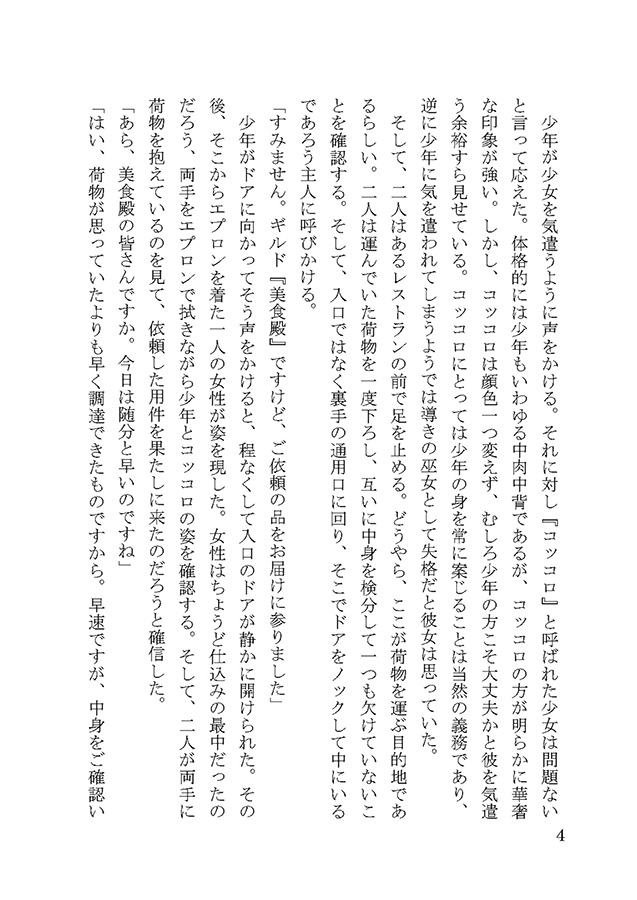 少年が少女を気遣うように声をかける。それに対し『コッコロ』と呼ばれた少女は問題ない
と言って応えた。体格的には少年もいわゆる中肉中背であるが、コッコロの方が明らかに華奢
な印象が強い。しかし、コッコロは顔色一つ変えず、むしろ少年の方こそ大丈夫かと彼を気遣
う余裕すら見せている。コッコロにとっては少年の身を常に案じることは当然の義務であり、
逆に少年に気を遣われてしまうようでは導きの巫女として失格だと彼女は思っていた。
　そして、二人はあるレストランの前で足を止める。どうやら、ここが荷物を運ぶ目的地であ
るらしい。二人は運んでいた荷物を一度下ろし、互いに中身を検分して一つも欠けていないこ
とを確認する。そして、入口ではなく裏手の通用口に回り、そこでドアをノックして中にいる
であろう主人に呼びかける。
「すみません。ギルド『美食殿』ですけど、ご依頼の品をお届けに参りました」
　少年がドアに向かってそう声をかけると、程なくして入口のドアが静かに開けられた。その
後、そこからエプロンを着た一人の女性が姿を現した。女性はちょうど仕込みの最中だったの
だろう、両手をエプロンで拭きながら少年とコッコロの姿を確認する。そして、二人が両手に
荷物を抱えているのを見て、依頼した用件を果たしに来たのだろうと確信した。
「あら、美食殿の皆さんですか。今日は随分と早いのですね」
「はい、荷物が思っていたよりも早く調達できたものですから。早速ですが、中身をご確認い
4